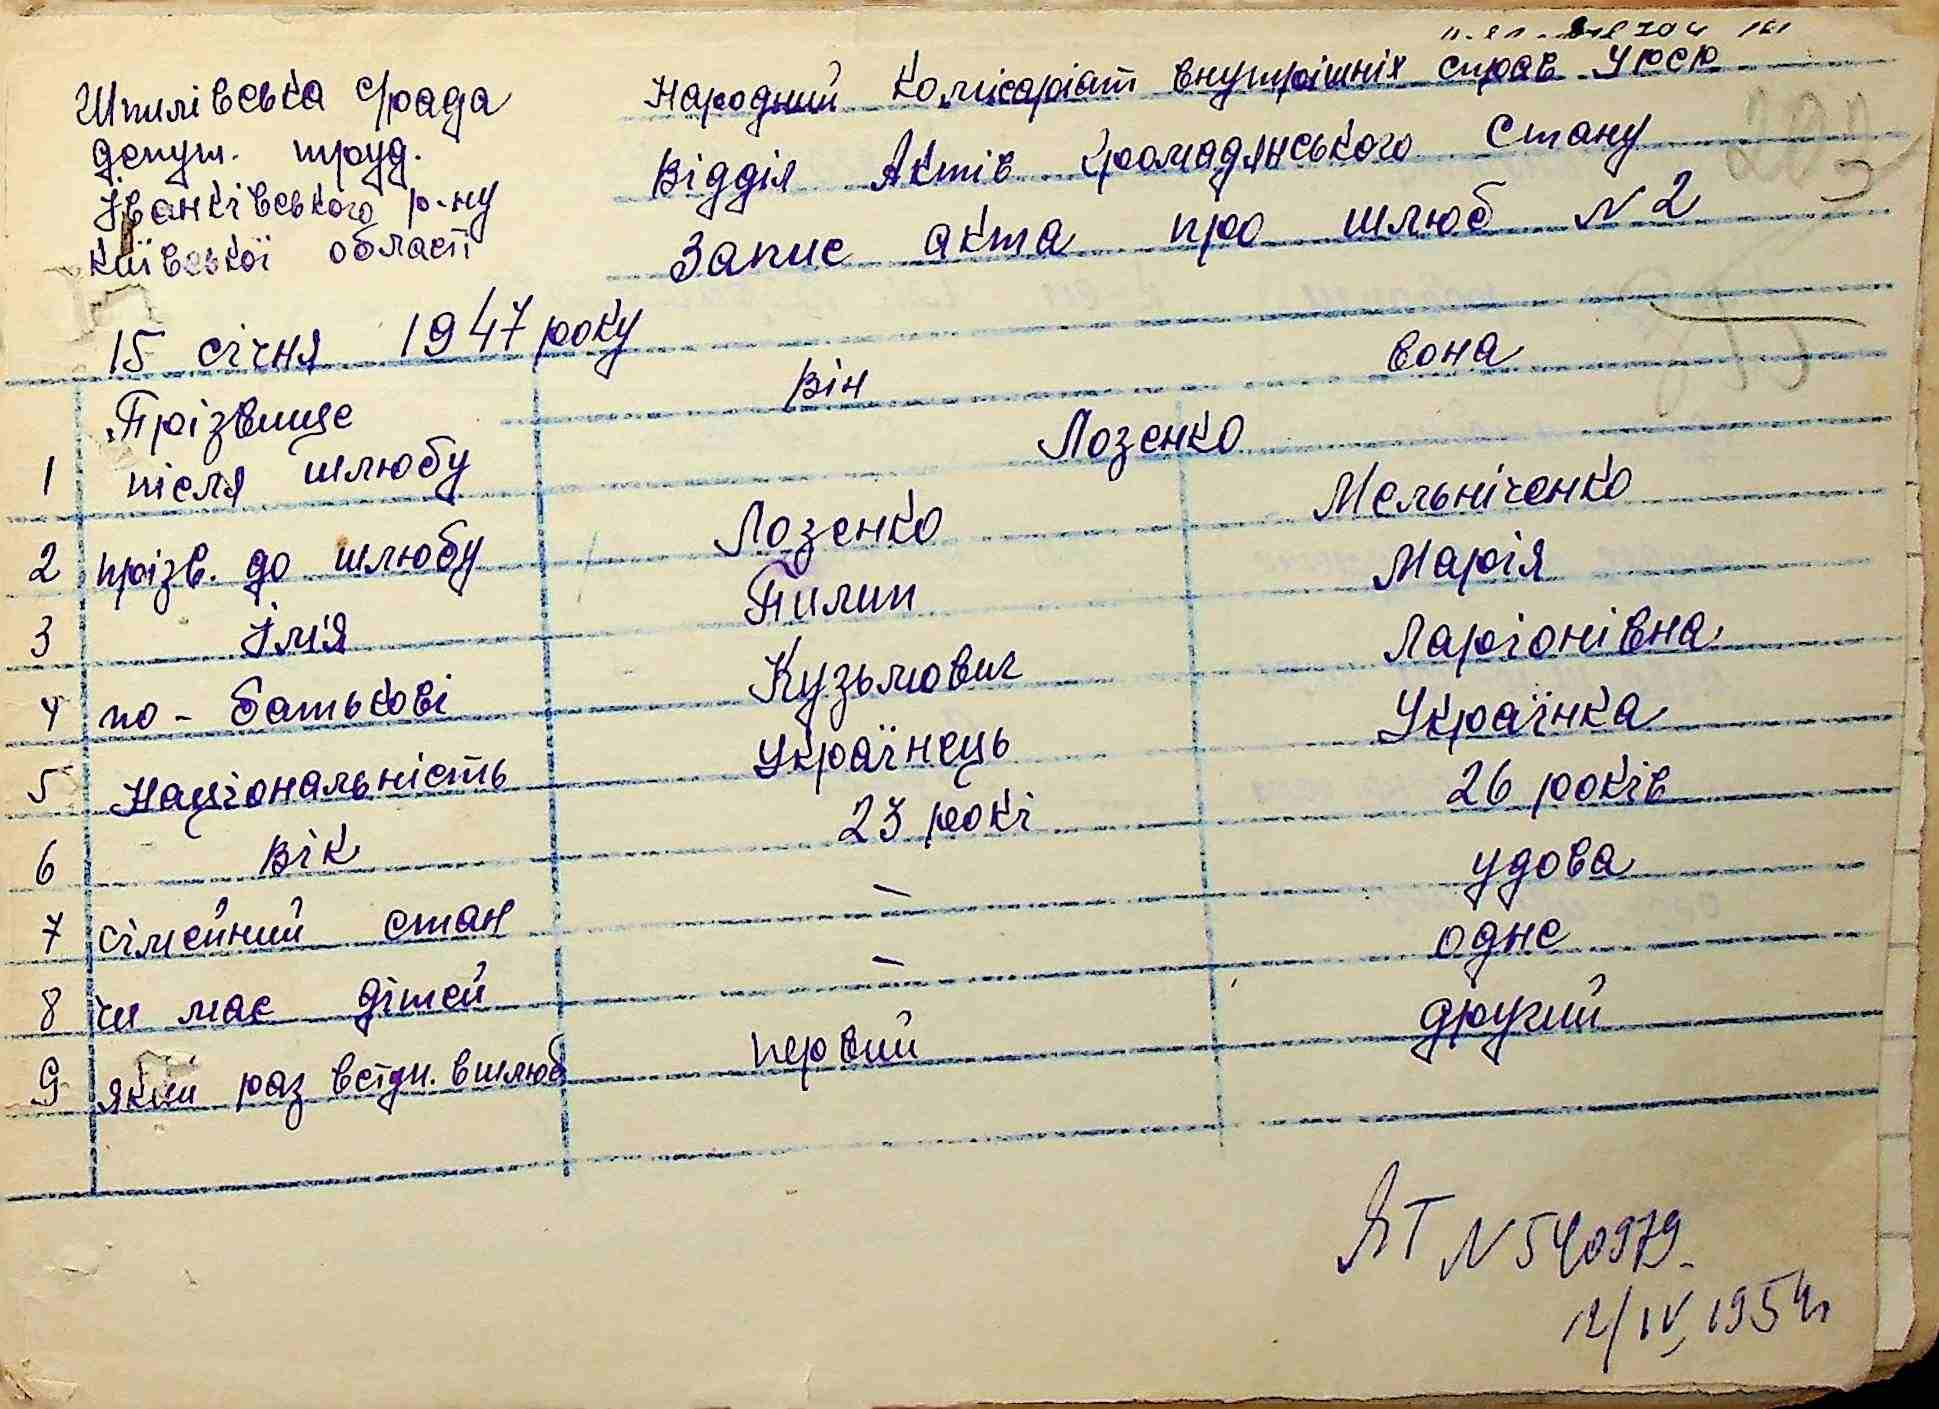 Шпилівська с/рада
депут. труд.
Іванківського р-ну
київської області
Народний Комісаріат внутрішніх справ УРСР
Відділ Актів Громадянського Стану
Запис акта про шлюб N 2
15 січня 1947 року
він вона
1 Прізвище після шлюбу Лозенко
2 прізв. до шлюбу Лозенко Мельніченко
3 Ім'я Пилип Марія
4 по-батькові Кузьмович Ларіонівна
5 Національність Українець Українка
6 вік 23 рокі 26 років
7 сімейний стан — удова
8 чи має дітей — одне
9 який раз вступ. в шлюб первий другий
ЯТ N 540979
12/IV, 1954 г